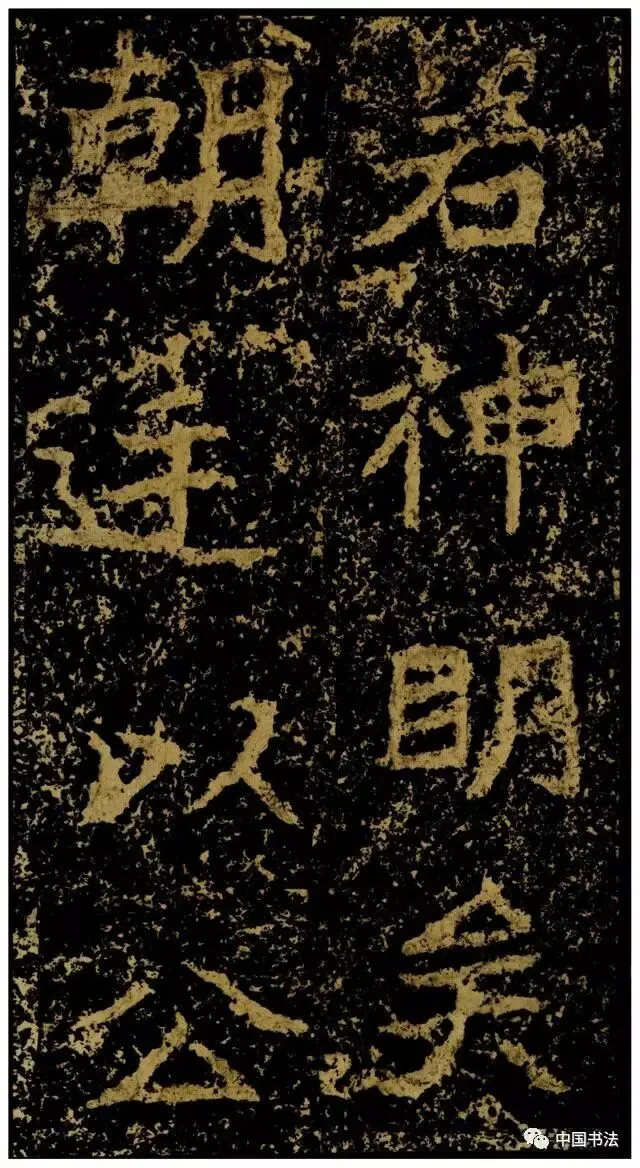 若神明矣
朝廷以公
中国书法